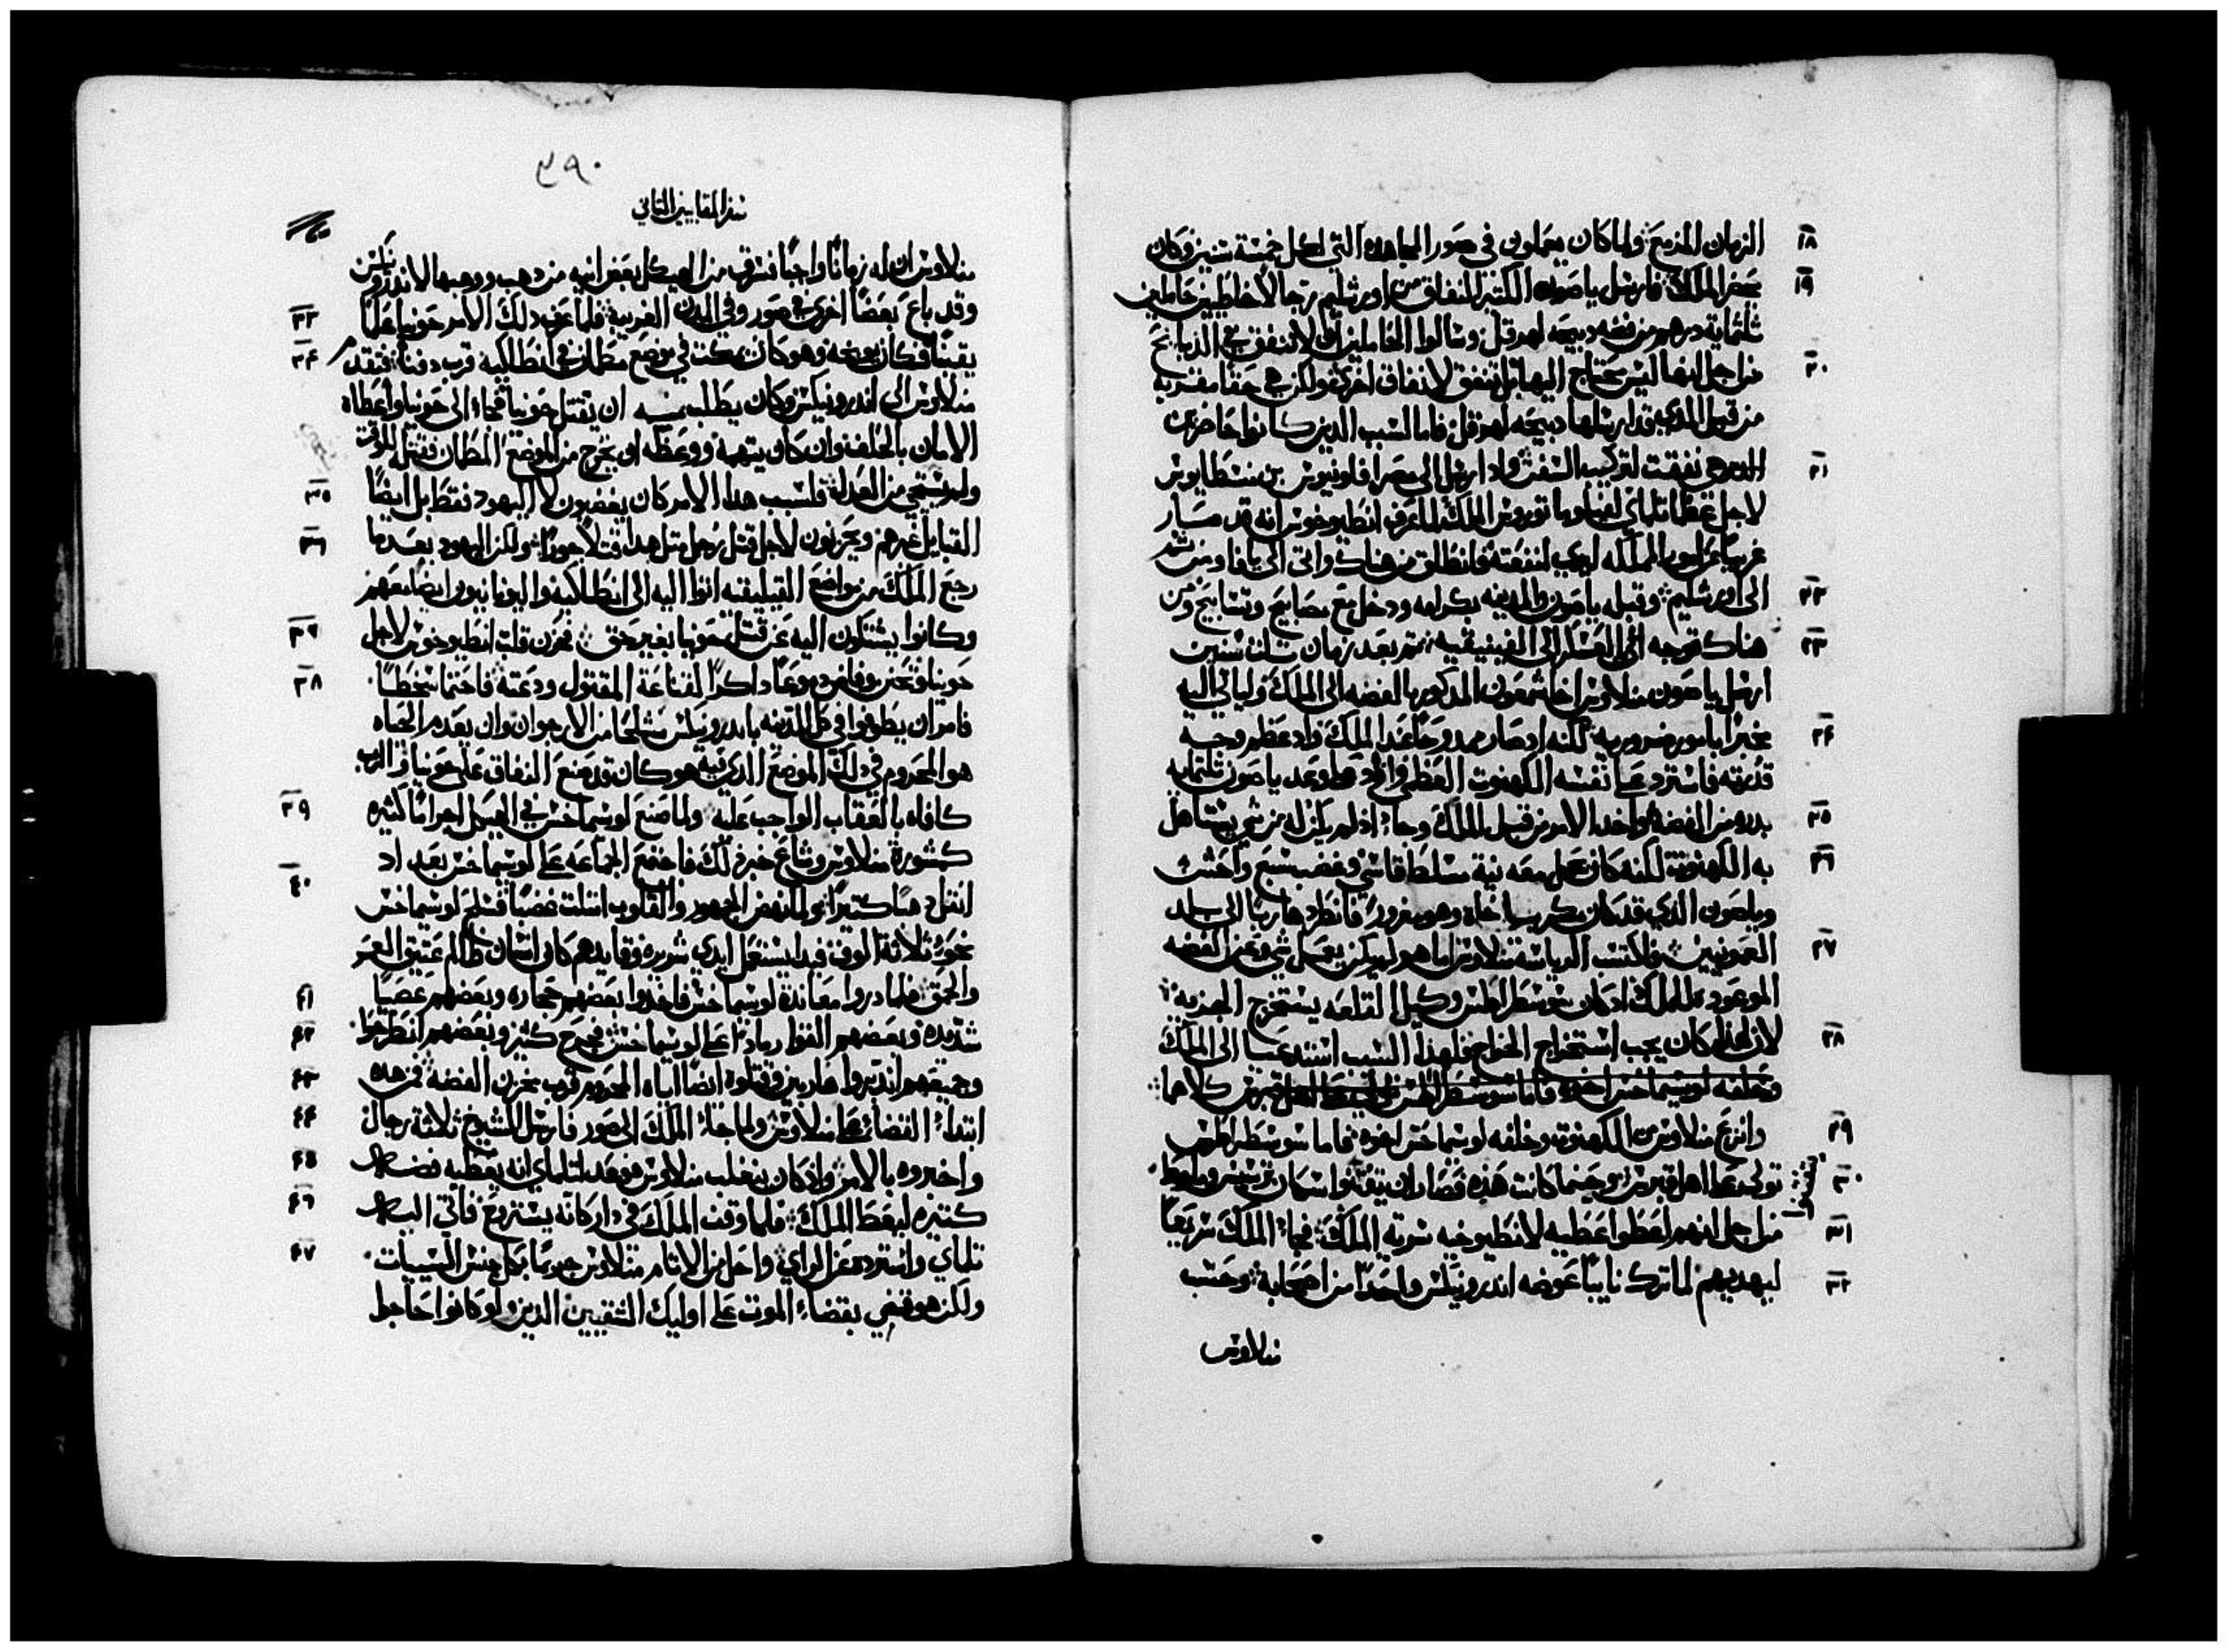 ١٨ الزمان المزمع ولما كان يعملون في صور المجاهده التي لكل خمسة سنين وكان
١٩ بحضر الملك فارسل ياصون الكثير النفاق من اورشليم رجالا خاطيين حاملين
ثلثماية درهم من فضه دبيحه لهرقل وسالوا الحاملين ان لا تنفق في الذبايح
٢٠ من اجل انها ليس يحتاج اليها بل تنفق لانفاق اخرى ولكن هي حقا مقربه
من قبل المذي قد ارسلها دبيحه لهرقل فاما السبب الدين كانوا حاضرين
٢١ نفقت لتركيب السفن واد ارسل الى مصر افلونيوس بن منسطاوس
لاجل عظما تلماي الملك لما عرف انطيوخوس انه قد صار
غريبا عن امور المملكه لمنفعته فانطلق من هناك واتى الى يافا ومن ثم
٢٢ الى اورشليم وقبله ياصون والمدينه بكرامه ودخل مع مصابيح وتسابيح ومن
٢٣ هناك توجه الى العسكر الى الفينيقيه ثم بعد زمان ثلث سنين
ارسل ياصون منلاوس اخا شمعون المدكور بالفضه الى الملك وليأتي اليه
٢٤ مخبرا بامور ضروريه لكنه اد صار ممدوحا عند الملك واد عظم وجه
قدرته فاسترد على نفسه الكهنوت العظمى وازاد على وعد ياصون ثلثمايه
٢٥ بدره من الفضه واخد الامر من قبل الملك وجاء اذ لم يكن له من شي يستاهل
٢٦ به الكهنوت لكنه كان يحمل معه نية مسلط قاسي وغضب سبع واحتث
وياصون الدي قد كان مكر باخاه وهو مغرور فانطرد هاربا الى بلد
٢٧ العمونيين فاكتسب الرياسه منلاوس اما هو لم يكن يعمل شي عن الفضه
الموعوده للملك اد كان سوسطراطس وكيل القلعه يستخرج الجزيه
٢٨ لان لهدا كان يجب استخراج الخراج فلهذا السبب استدعيا الى الملك
وخلفه لوسيماخس اخوه فاما سوسطراطس كلاهما
٢٩ وانزع منلاوس من الكهنوت وخلفه لوسيماخس اخوه فاما سوسطراطس
٣٠ تولى على اهل قبرس وحينما كانت هذه فصار ان يفتنوا اسكان ترسيس وملوط
٣١ من اجل انهم اعطوا عطيه لانطيوخيه سرية الملك فجاء الملك سريعا
٣٢ ليهديهم لما ترك نايبا عوضه اندرونيكس واحدا من اصحابه وحسب
منلاوس
٢٩٠
سفر المقابيين الثاني
منلاوس ان له زمانا واجبا فسرق من الهيكل بعض انيه من دهب ووهبها لاندرونيكس
٣٣ وقد باع بعضا اخرى في صور وفي المدن القريبة فلما عرف ذلك الامر حونيا علما
٣٤ يقينا فكان يوبخه وهو كان يمكث في موضع مطمان في انطاكيه قرب دفنا فتقدم
منلاوس الى اندرونيكس وكان يطلب منه ان يقتل حونيا فجاء الى حونيا واعطاه
الامان بالحلف وان كان يتهمه ووعظه ان يخرج من الموضع المطمان فقتله للوقت
٣٥ ولم يستحي من العدله فلسبب هدا الامر كان يغضبون لا اليهود فقط بل ايضا
٣٦ القبايل غيرهم ويحزنون لاجل قتل رجل مثل هدا قتلا جورا ولكن اليهود بعدما
رجع الملك من مواضع القيليقيه اتوا اليه الى انطاكيه واليونانيون ايضا معهم
٣٧ وكانوا يشتكون اليه عن قتل حونيا بغير حق فحزن قلب انطيوخوس لاجل
٣٨ حونيا وتحنن وفاض دموعا ذاكرا لقناعة المقتول ودعته فاحتما سخطا
فامر ان يطوفوا في كل المدينه باندرونيكس مشلحا من الارجوان وان يعدم الحياه
هو المحروم في ذلك الموضع الدي فيه هو كان قد صنع النفاق على حونيا والرب
٣٩ كافاه بالعقاب الواجب عليه ولما صنع لوسيماخس في الهيكل اجراما كثيره
كمشورة منلاوس وشاع خبر ذلك فاجتمع الجماعه على لوسيماخس بعد اد
٤٠ انتقل دهبا كثيرا ولما نهض الجمهور والقلوب امتلت غضبا فسلح لوسيماخس
نحو ثلاثة الوف فبدا يستعمل ايدي شريره وقايدهم كان انسان ظالم عتيق العمر
٤١ والحمق فلما دروا معاندة لوسيماخس فاخدوا بعضهم حجاره وبعضهم عصيا
٤٢ شديده وبعضهم القوا رمادا على لوسيماخس فجرح كثير وبعضهم انطرحوا
٤٣ وجميعهم انديروا هاربين وقتلوه ايضا اياه المحروم قرب مخزن الفضه فمن هده
٤٤ ابتداء القضا على منلاوس ولما جاء الملك الى صور فارسل المشيخ ثلاثة رجال
٤٥ واخبروه بالامر واذ كان ينغلب منلاوس فوعد لتلماي انه يعطيه فضه
٤٦ كثيره ليعظ الملك فلما وقف الملك في دار كانه يستروح فاتي اليه
٤٧ تلماي واسترده عن الراي واحل من الاثام منلاوس مجرما بكل جنس السييات
ولكن هو قضي بقضاء الموت على اوليك الشقيين الدين لو كانوا حاجوا